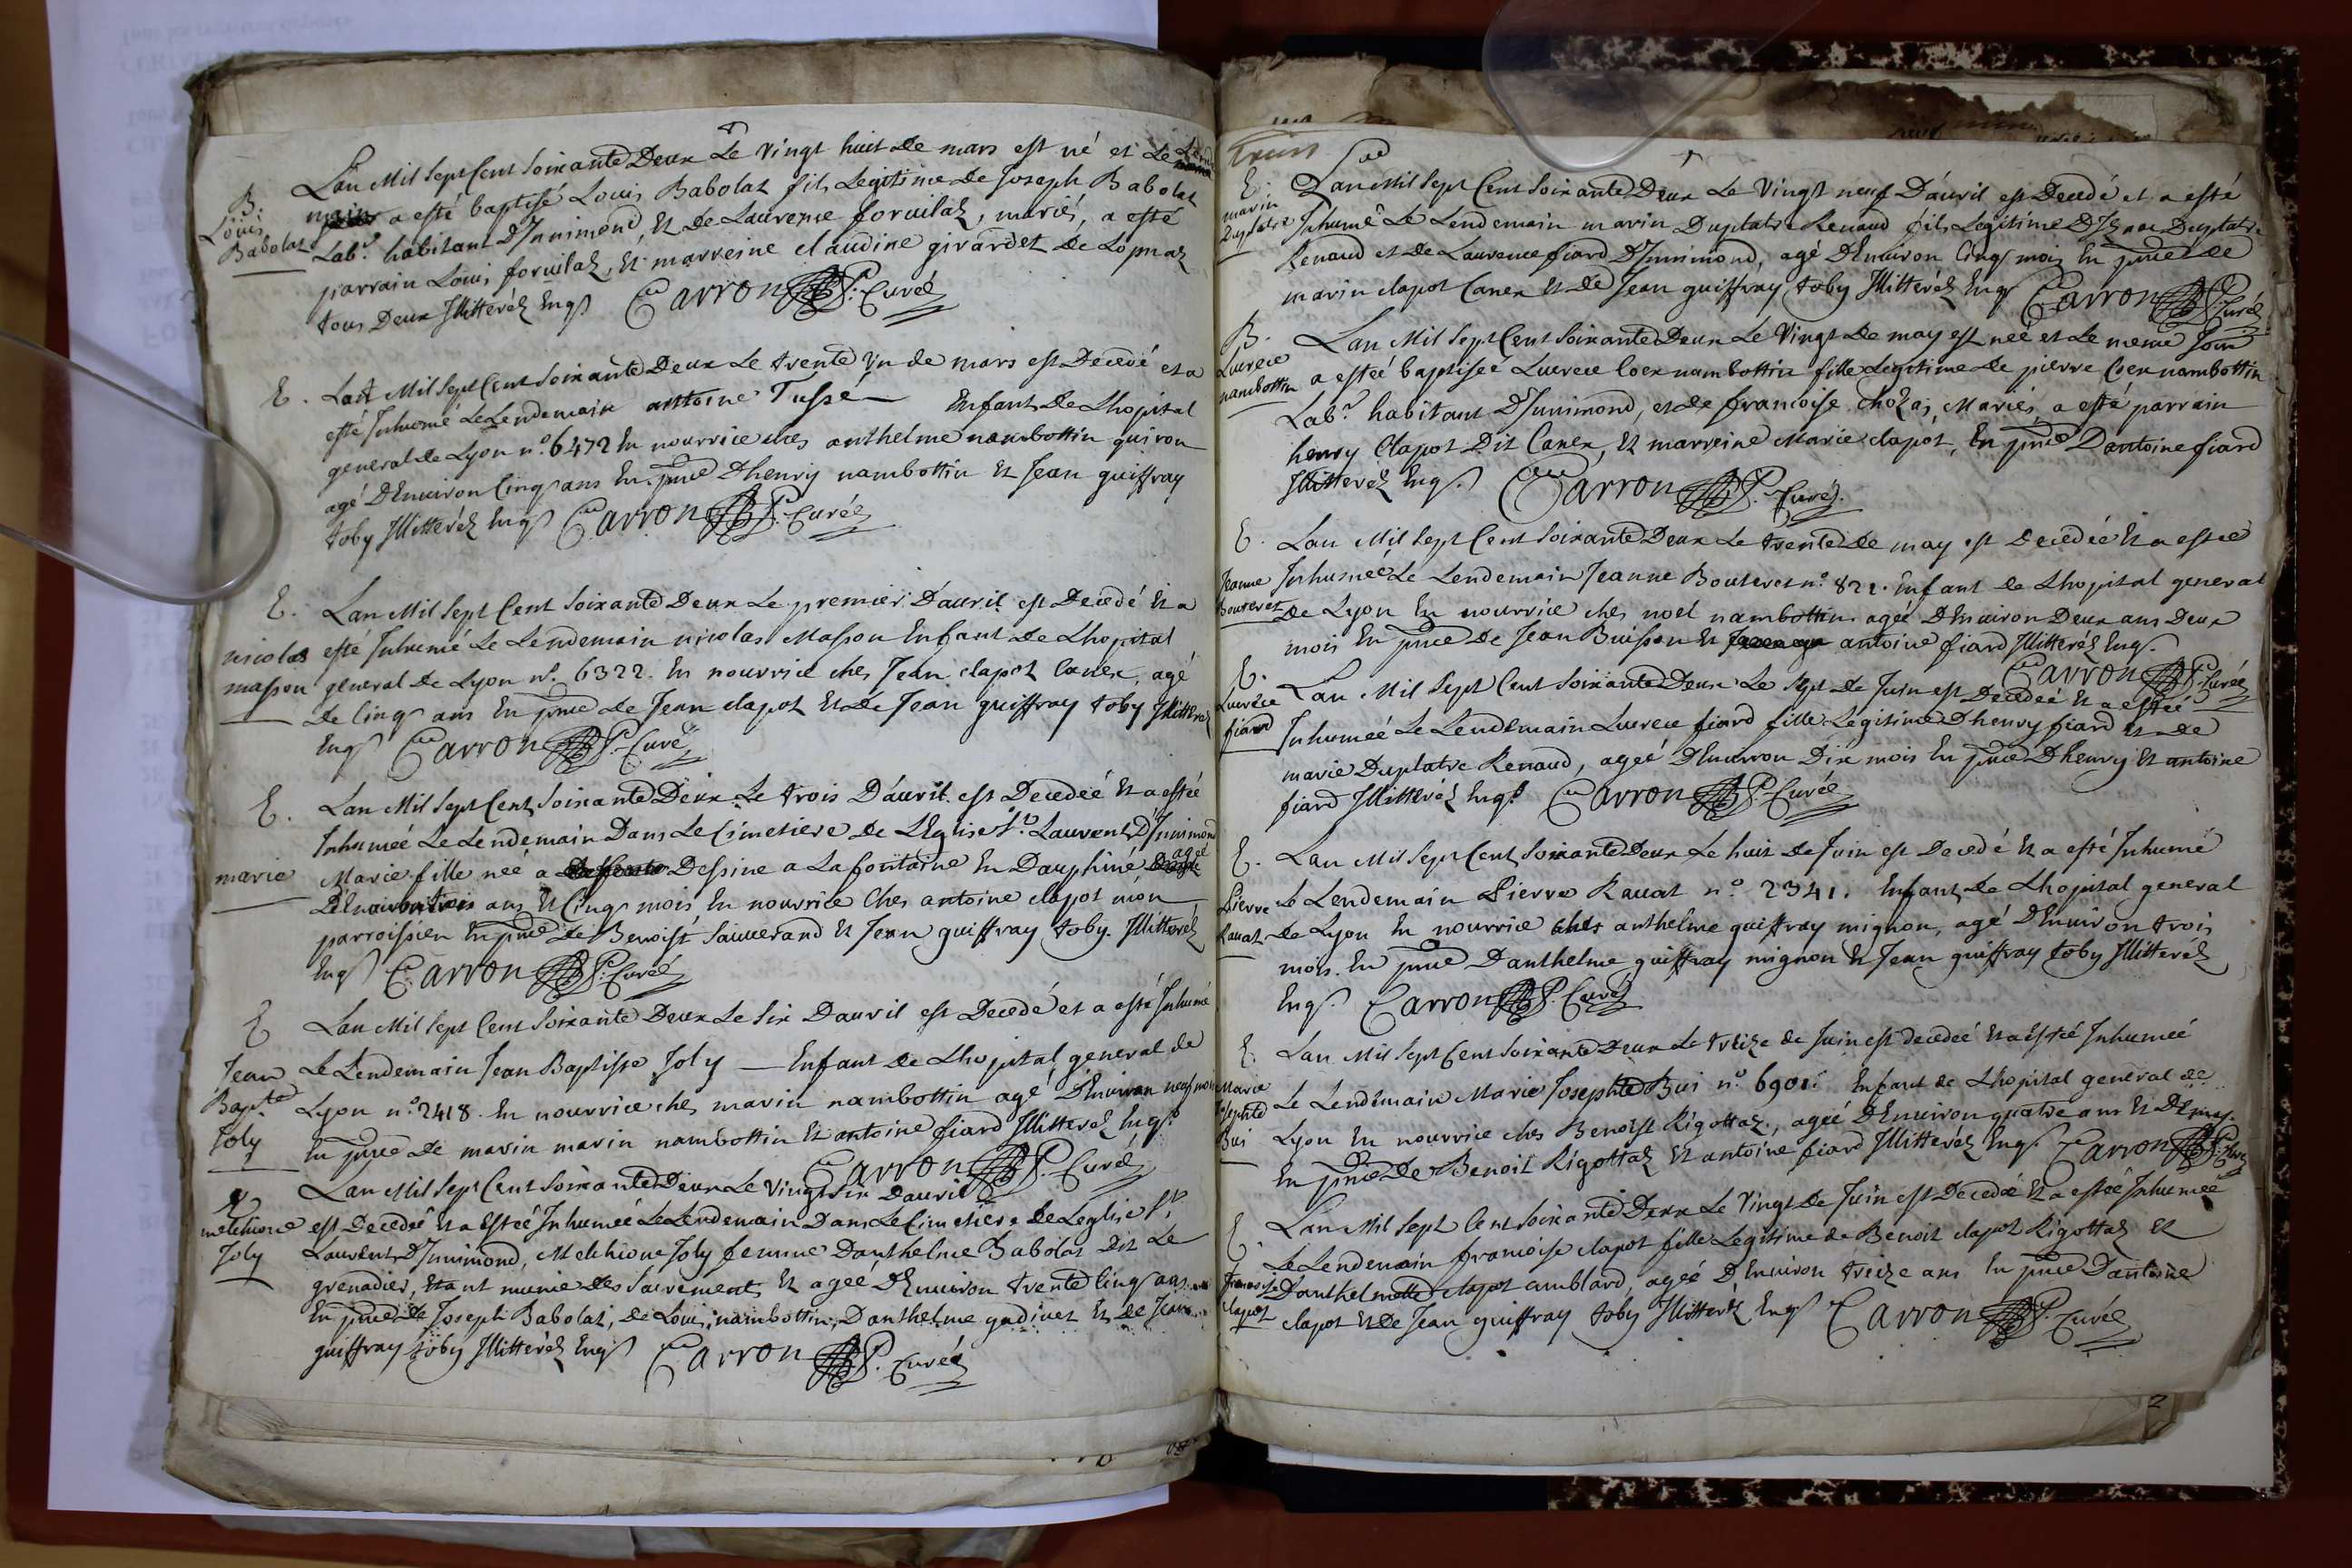 B.
Louis
Babolat
Lan Mil Sept Cent Soixante Deux Le vingt huit de mars est né et Le
a esté baptisé Louis Babolat fils Legitime de Joseph Babolat
Labr. habitant D'Innimond, Et de Laurence forvilaz, mariés, a esté
parrain Louis forvilaz, Et marreine claudine girardet de Lopnaz
tous Deux Jllitteréz Enqs Carron P. Curé
E. Lan Mil Sept Cent Soixante Deux Le trente Vn de mars est Decedé et a
esté Jnhumé Le Lendemain antoine Tussé Enfant de Lhopital
general de Lyon n.º 6472 En nourrice ches anthelme nambottin quiron
agé D'Environ Cinq ans En pnce Dhenry nambottin Et Jean guiffray
toby Jllitteréz Enqs Carron P. Curé
E.
nicolas
masson
Lan Mil Sept Cent Soixante Deux Le premier D'auril est Decedé Et a
esté Jnhumé Le Lendemain nicolas Masson Enfant de Lhopital
general de Lyon n.º 6322. En nourrice ches Jean clapot Canex, agé
de Cinq ans En pnce de Jean clapot Et de Jean guiffray toby Jllitteréz
Enqs Carron P. Curé
E.
marie
Lan Mil Sept Cent Soixante Deux Le trois D'auril est Decedeé Et a estéé
Jnhumeé Le Lendemain Dans Le Cimetiere de LEglise St. Laurent D'Innimond
Marie fille neé a Dessine a Lafontaine En Dauphine ageé
D'Environ trois ans Et Cinq mois En nourrice Ches antoine clapot mon
parroissien En pnce de Benoist Sauuerand Et Jean guiffray toby Jllitteréz
Enqs Carron P. Curé
E
Jean
Bapte
Joly
Lan Mil Sept Cent Soixante Deux Le Six Dauril est Decedé et a esté Jnhumé
Le Lendemain Jean Baptiste Joly — Enfant de Lhopital general de
Lyon n.º 2418. En nourrice ches marin nambottin agé D'Environ neuf mois
En pnce de marin marin nambottin Et antoine fiard Jllitteréz Enqs.
Carron P. Curé
melchione
Joly
Lan Mil Sept Cent Soixante Deux Le Vingt Six Dauril
est Decedeé Et a Estéé Jnhumeé Le Lendemain Dans Le Cimetiere de Leglise St.
Laurent D'Innimond, Melchione Joly femme Danthelme Babolat Dit Le
grenadier, Etant munie des Sacrements Et ageé D'Environ trente Cinq ans
En pnce de Joseph Babolat, de Louis nambottin, Danthelme gudinet Et de Jean
guiffray toby Jllitteréz Enqs Carron P. Curé
E.
marin
Duplatre
Lan Mil Sept Cent Soixante Deux Le Vingt neuf D'auril est Decedé et a esté
Jnhumé Le Lendemain marin Duplatre Renaud fils Legitime D'Izaac Duplatre
Renaud et de Laurence fiard D'Innimond, agé D'Environ Cinq mois En pnce de
marin clapot Canex Et de Jean guiffray toby Jllitteréz Enqs Carron P. Curé
B.
Lucrece
nambottin
Lan Mil Sept Cent Soixante Deux Le Vingt de may est neé et Le meme Jour
a estéé baptiseé Lucrece Coex nambottin fille Legitime de pierre Coex nambottin
Labr. habitant D'Innimond, et de francoise Cholaz, Mariés a esté parrain
henry Clapot Dit Canex, Et marreine Marie clapot, En pnce Dantoine fiard
Jllitteréz Enqs. Carron P. Curé.
E.
Jeanne
Bouteret
Lan Mil Sept Cent Soixante Deux Le trente de may est Decedeé Et a estéé
Jnhumeé Le Lendemain Jeanne Bouteret n.º 822. Enfant de Lhopital general
de Lyon En nourrice ches noel nambottin ageé D'Environ Deux ans Deux
mois En pnce de Jean Buisson Et antoine fiard Jllitteréz Enqs.
Carron P. Curé
E.
Lucrece
fiard
Lan Mil Sept Cent Soixante Deux Le Sept de Juin est Decedeé Et a estéé
Jnhumeé Le Lendemain Lucrece fiard fille Legitime Dhenry fiard et de
marie Duplatre Renaud, ageé D'Environ Dix mois En pnce Dhenry Et antoine
fiard Jllitteréz Enqs. Carron P. Curé
E.
Pierre
Rauat
Lan Mil Sept Cent Soixante Deux Le huit de Juin est Decedé Et a esté Jnhumé
Le Lendemain Pierre Rauat n.º 2341. Enfant de Lhopital general
de Lyon En nourrice ches anthelme guiffray mignon, agé D'Environ trois
mois. En pnce Danthelme guiffray mignon Et Jean guiffray toby Jllitteréz
Enqs. Carron P. Curé
E.
Marie
Josephte
Bui
Lan Mil Sept Cent Soixante Deux Le treize de Juin est decedeé Et a estéé Jnhumeé
Le Lendemain Marie Josephte Bui n.º 6901. Enfant de Lhopital general de
Lyon En nourrice ches Benoist Rigottaz, ageé D'Environ quatre ans Et Demy.
En pnce de Benoit Rigottaz Et antoine fiard Jllitteréz Enqs. Carron P. Curé
E.
francoise
clapot
Lan Mil Sept Cent Soixante Deux Le Vingt de Juin est Decedeé Et a estéé Jnhumeé
Le Lendemain francoise clapot fille Legitime de Benoit clapot Rigottaz Et
Danthelmette clapot amblard, ageé D'Environ treize ans En pnce Dantoine
clapot Et de Jean guiffray toby Jllitteréz Enqs Carron P. Curé